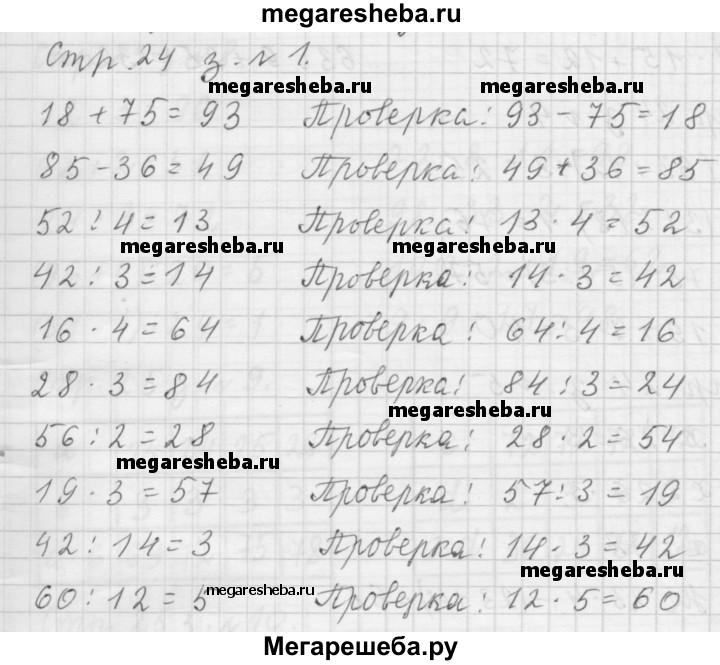 megaresheba.ru
Стр. 24 з. № 1.
megaresheba.ru megaresheba.ru
18 + 75 = 93 Проверка: 93 - 75 = 18
85 - 36 = 49 Проверка: 49 + 36 = 85
52 : 4 = 13 Проверка: 13 · 4 = 52
megaresheba.ru megaresheba.ru
42 : 3 = 14 Проверка: 14 · 3 = 42
16 · 4 = 64 Проверка: 64 : 4 = 16
28 · 3 = 84 Проверка: 84 : 3 = 24
megaresheba.ru
56 : 2 = 28 Проверка: 28 · 2 = 54
megaresheba.ru
19 · 3 = 57 Проверка: 57 : 3 = 19
42 : 14 = 3 Проверка: 14 · 3 = 42
megaresheba.ru
60 : 12 = 5 megaresheba.ru Проверка: 12 · 5 = 60
Мегарешеба.ру